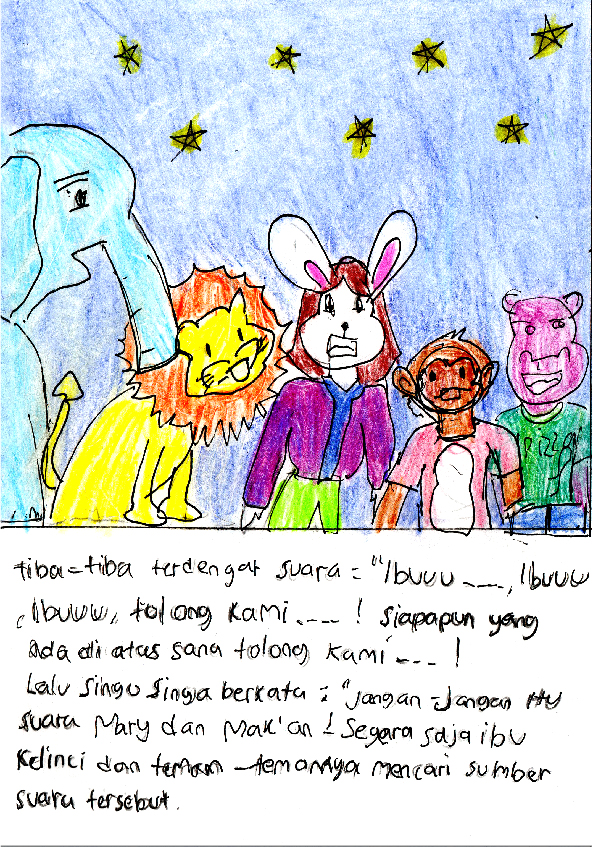 tiba=tiba terdengar suara : "Ibuuu ----, Ibuuu
, Ibuuu, tolong kami ---- ! siapapun yang
Ada di atas sana tolong kami ---- !
Lalu singa singa berkata : "jangan-jangan itu
suara Mary dan Mak'an ! Segara saja ibu
Kelinci dan teman-temannya mencari sumber
suara tersebut.